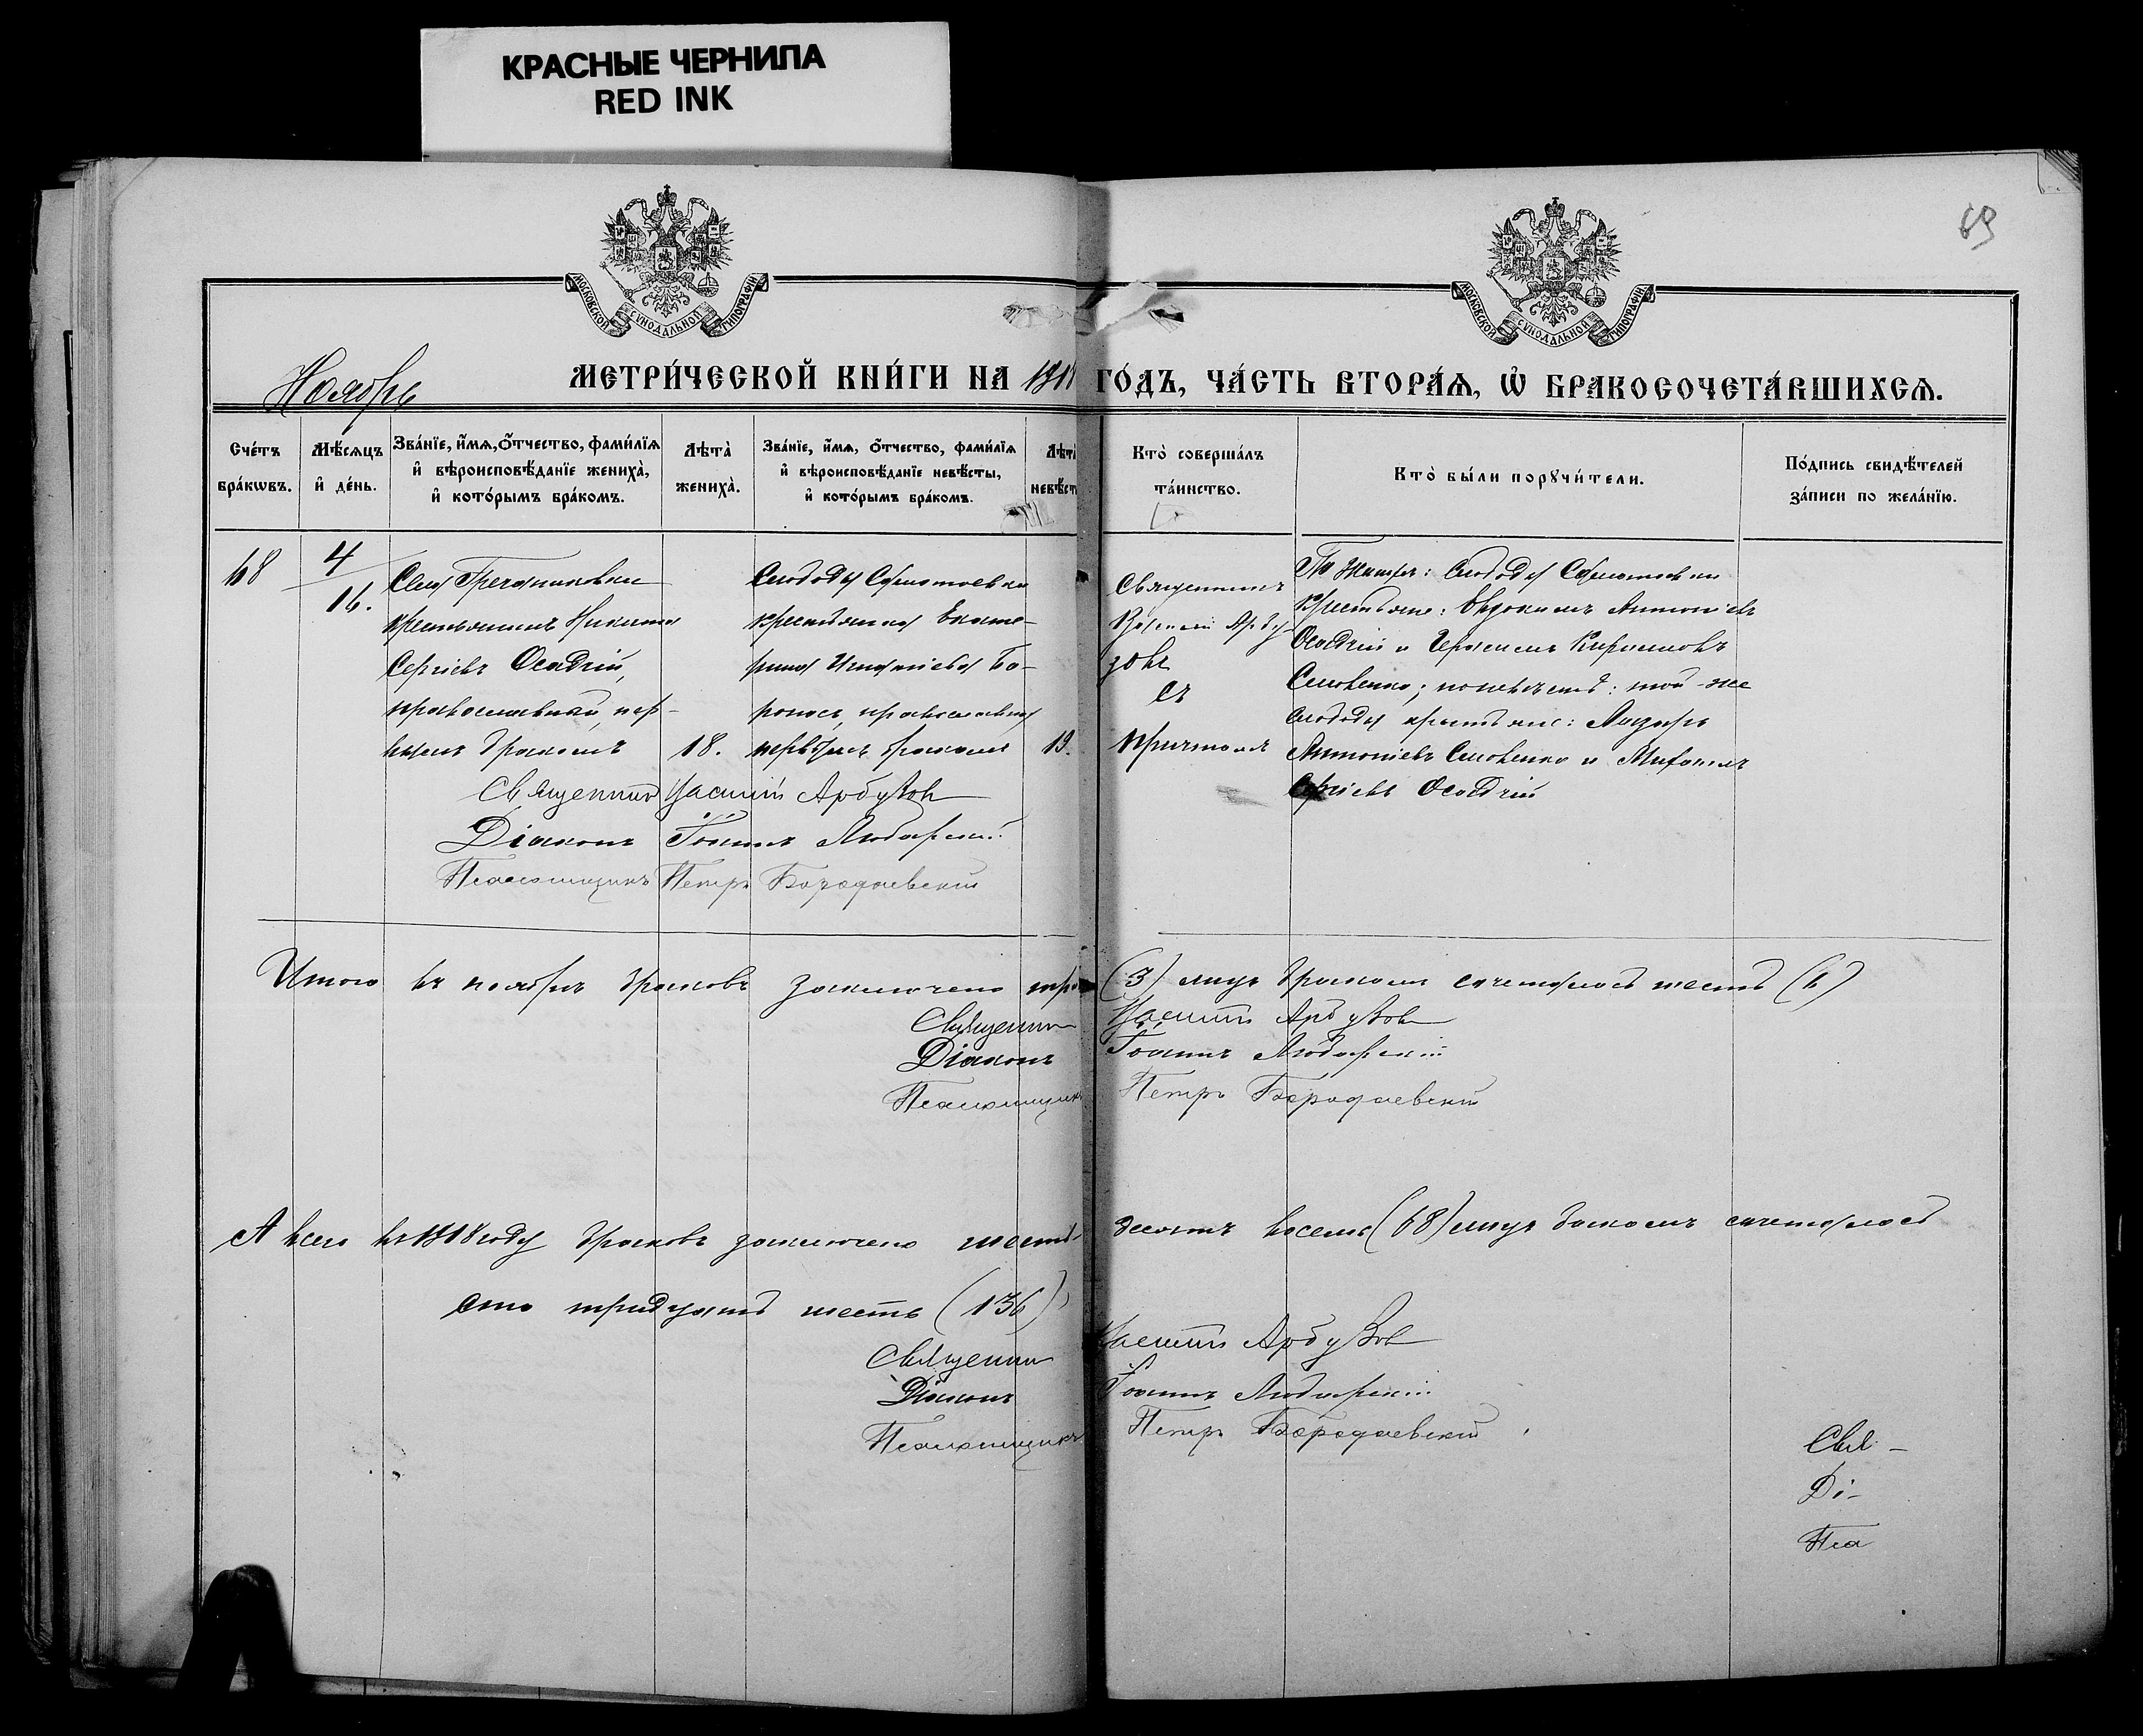 КРАСНЫЕ ЧЕРНИЛА
RED INK
МОСКОВСКОЙ СУНОДАЛЬНОЙ ТИПОГРАФІИ
МОСКОВСКОЙ СУНОДАЛЬНОЙ ТИПОГРАФІИ
69
Ноябрь
МЕТРИ́ЧЕСКОЙ КНИ́ГИ НА 1918 ГО́ДЪ, ЧА́СТЬ ВТОРА́Я, Ѡ҆ БРАКОСОЧЕТА́ВШИХСЯ.
Сче́тъ
бра́кѡвъ.
Мѣ́сяцъ
и҆ де́нь.
Зва́нїе, и҆́мя, ѻ҆́тчество, фами́лїя
и҆ вѣроисповѣ́данїе жениха̀,
и҆ кото́рымъ бра́комъ.
Лѣта̀
жениха̀.
Зва́нїе, и҆́мя, ѻ҆́тчество, фами́лїя
и҆ вѣроисповѣ́данїе невѣ́сты,
и҆ кото́рымъ бра́комъ.
Лѣта̀
невѣ́сты
Кто̀ соверша́лъ
та́инство.
Кто̀ бы́ли порꙋчи́тели.
По́дпись свидѣ́телей
за́писи по жела́нїю.
68
4
16.
Села Гречаниковки
крестьянинъ Никита
Сергіевъ Осадчій,
православный пер-
вымъ бракомъ
18.
Слободы
крестьянка Екате-
рина Игнатіева Ба-
ранось, православная
первымъ бракомъ
19.
Священникъ
Василій Арбу-
зовъ
съ
причтомъ
По женихѣ: Слободы
крестьяне: Евдокимъ Антоніевъ
Осадчій и Герасимъ Кириловъ
Смовенко; по невѣстѣ: той-же
слободы крестьяне: Лазарь
Антоніевъ Смовенко и Михаилъ
Сергіевъ Осадчій
Священник Василій Арбузов
Діаконъ Іоаннъ Любарскій
Псаломщикъ Петръ Бородаевскій
Итого въ ноябрѣ браковъ заключено три (3) лицъ бракомъ сочеталось шесть (6)
Священник Василій Арбузов
Діаконъ Іоаннъ Любарскій
Псаломщикъ Петръ Бородаевскій
А всего въ 1918 году браковъ заключено шестьдесятъ восемь (68) лицъ бракомъ сочеталось
сто тридцать шесть (136)
Священник Василій Арбузов
Діаконъ Іоаннъ Любарскій
Псаломщикъ Петръ Бородаевскій
Свя-
Ді-
Пса